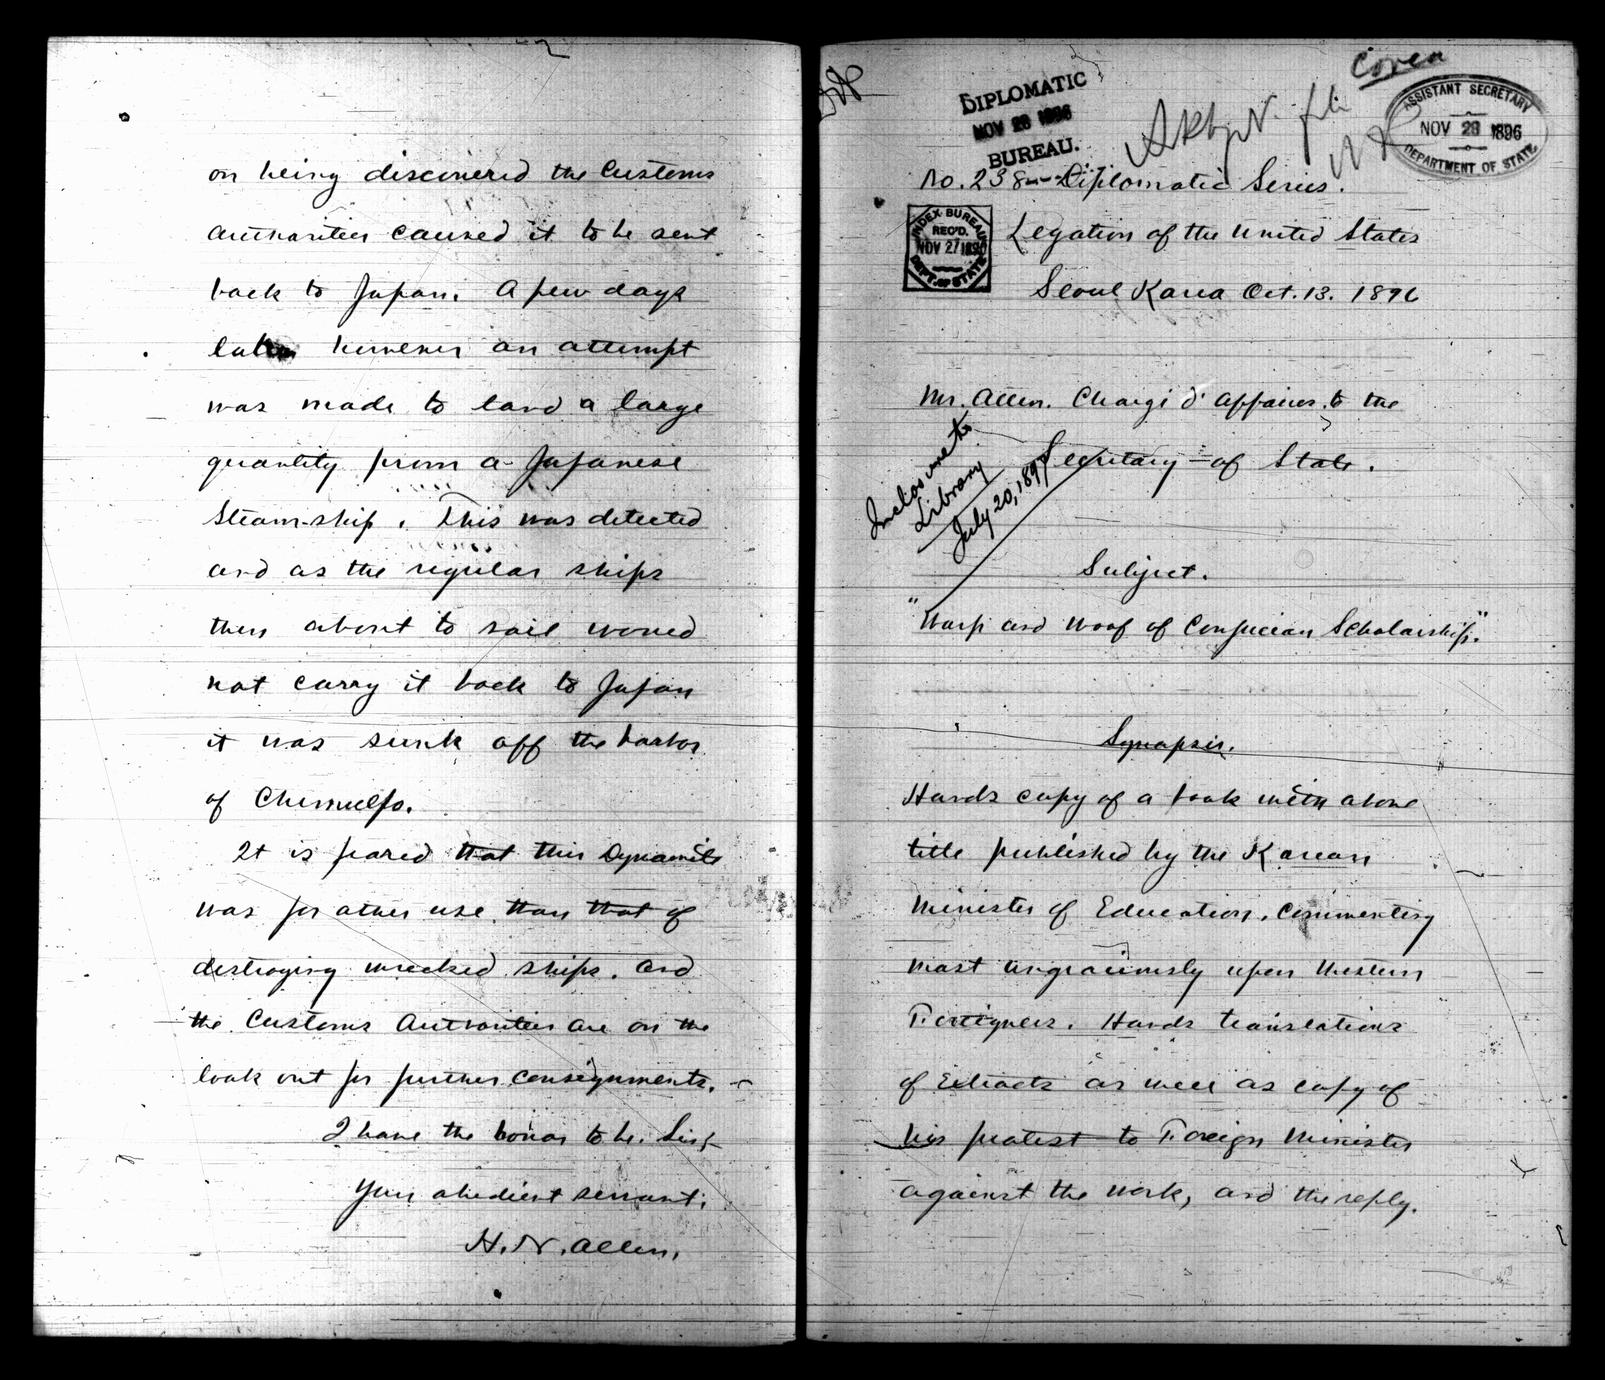 2
on being discovered the Customs
Authorities caused it to be sent
back to Japan. A few days
later however an attempt
was made to land a large
quantity from a Japanese
Steam-ship. This was detected
and as the regular ships
then about to sail would
not carry it back to Japan
it was sunk off the harbor
of Chemulpo.
It is feared that this Dynamite
was for other use than that of
destroying wrecked ships. and
the Customs Authorities are on the
look out for further consignments.
I have the honor to be. Sir,
Your obedient servant,
H. N. Allen.
Corea
DIPLOMATIC
NOV 28 1896
BUREAU.
ASSISTANT SECRETARY
NOV 28 1896
DEPARTMENT OF STATE
No. 238 Diplomatic Series.
INDEX BUREAU
REC'D.
NOV 27 1896
DEPT. OF STATE
Legation of the United States
Seoul Korea Oct. 13. 1896
Mr. Allen. Chargé d' Affaires to the
Secretary of State.
Inclosure to
Library
July 20, 1897
Subject.
"Warp and Woof of Confucian Scholarship."
Synopsis.
Hands copy of a book with above
title published by the Korean
Minister of Education. Commenting
most ungraciously upon Western
Foreigners. Hands translations
of Extracts as well as copy of
his protest to Foreign Minister
against the work, and the reply.